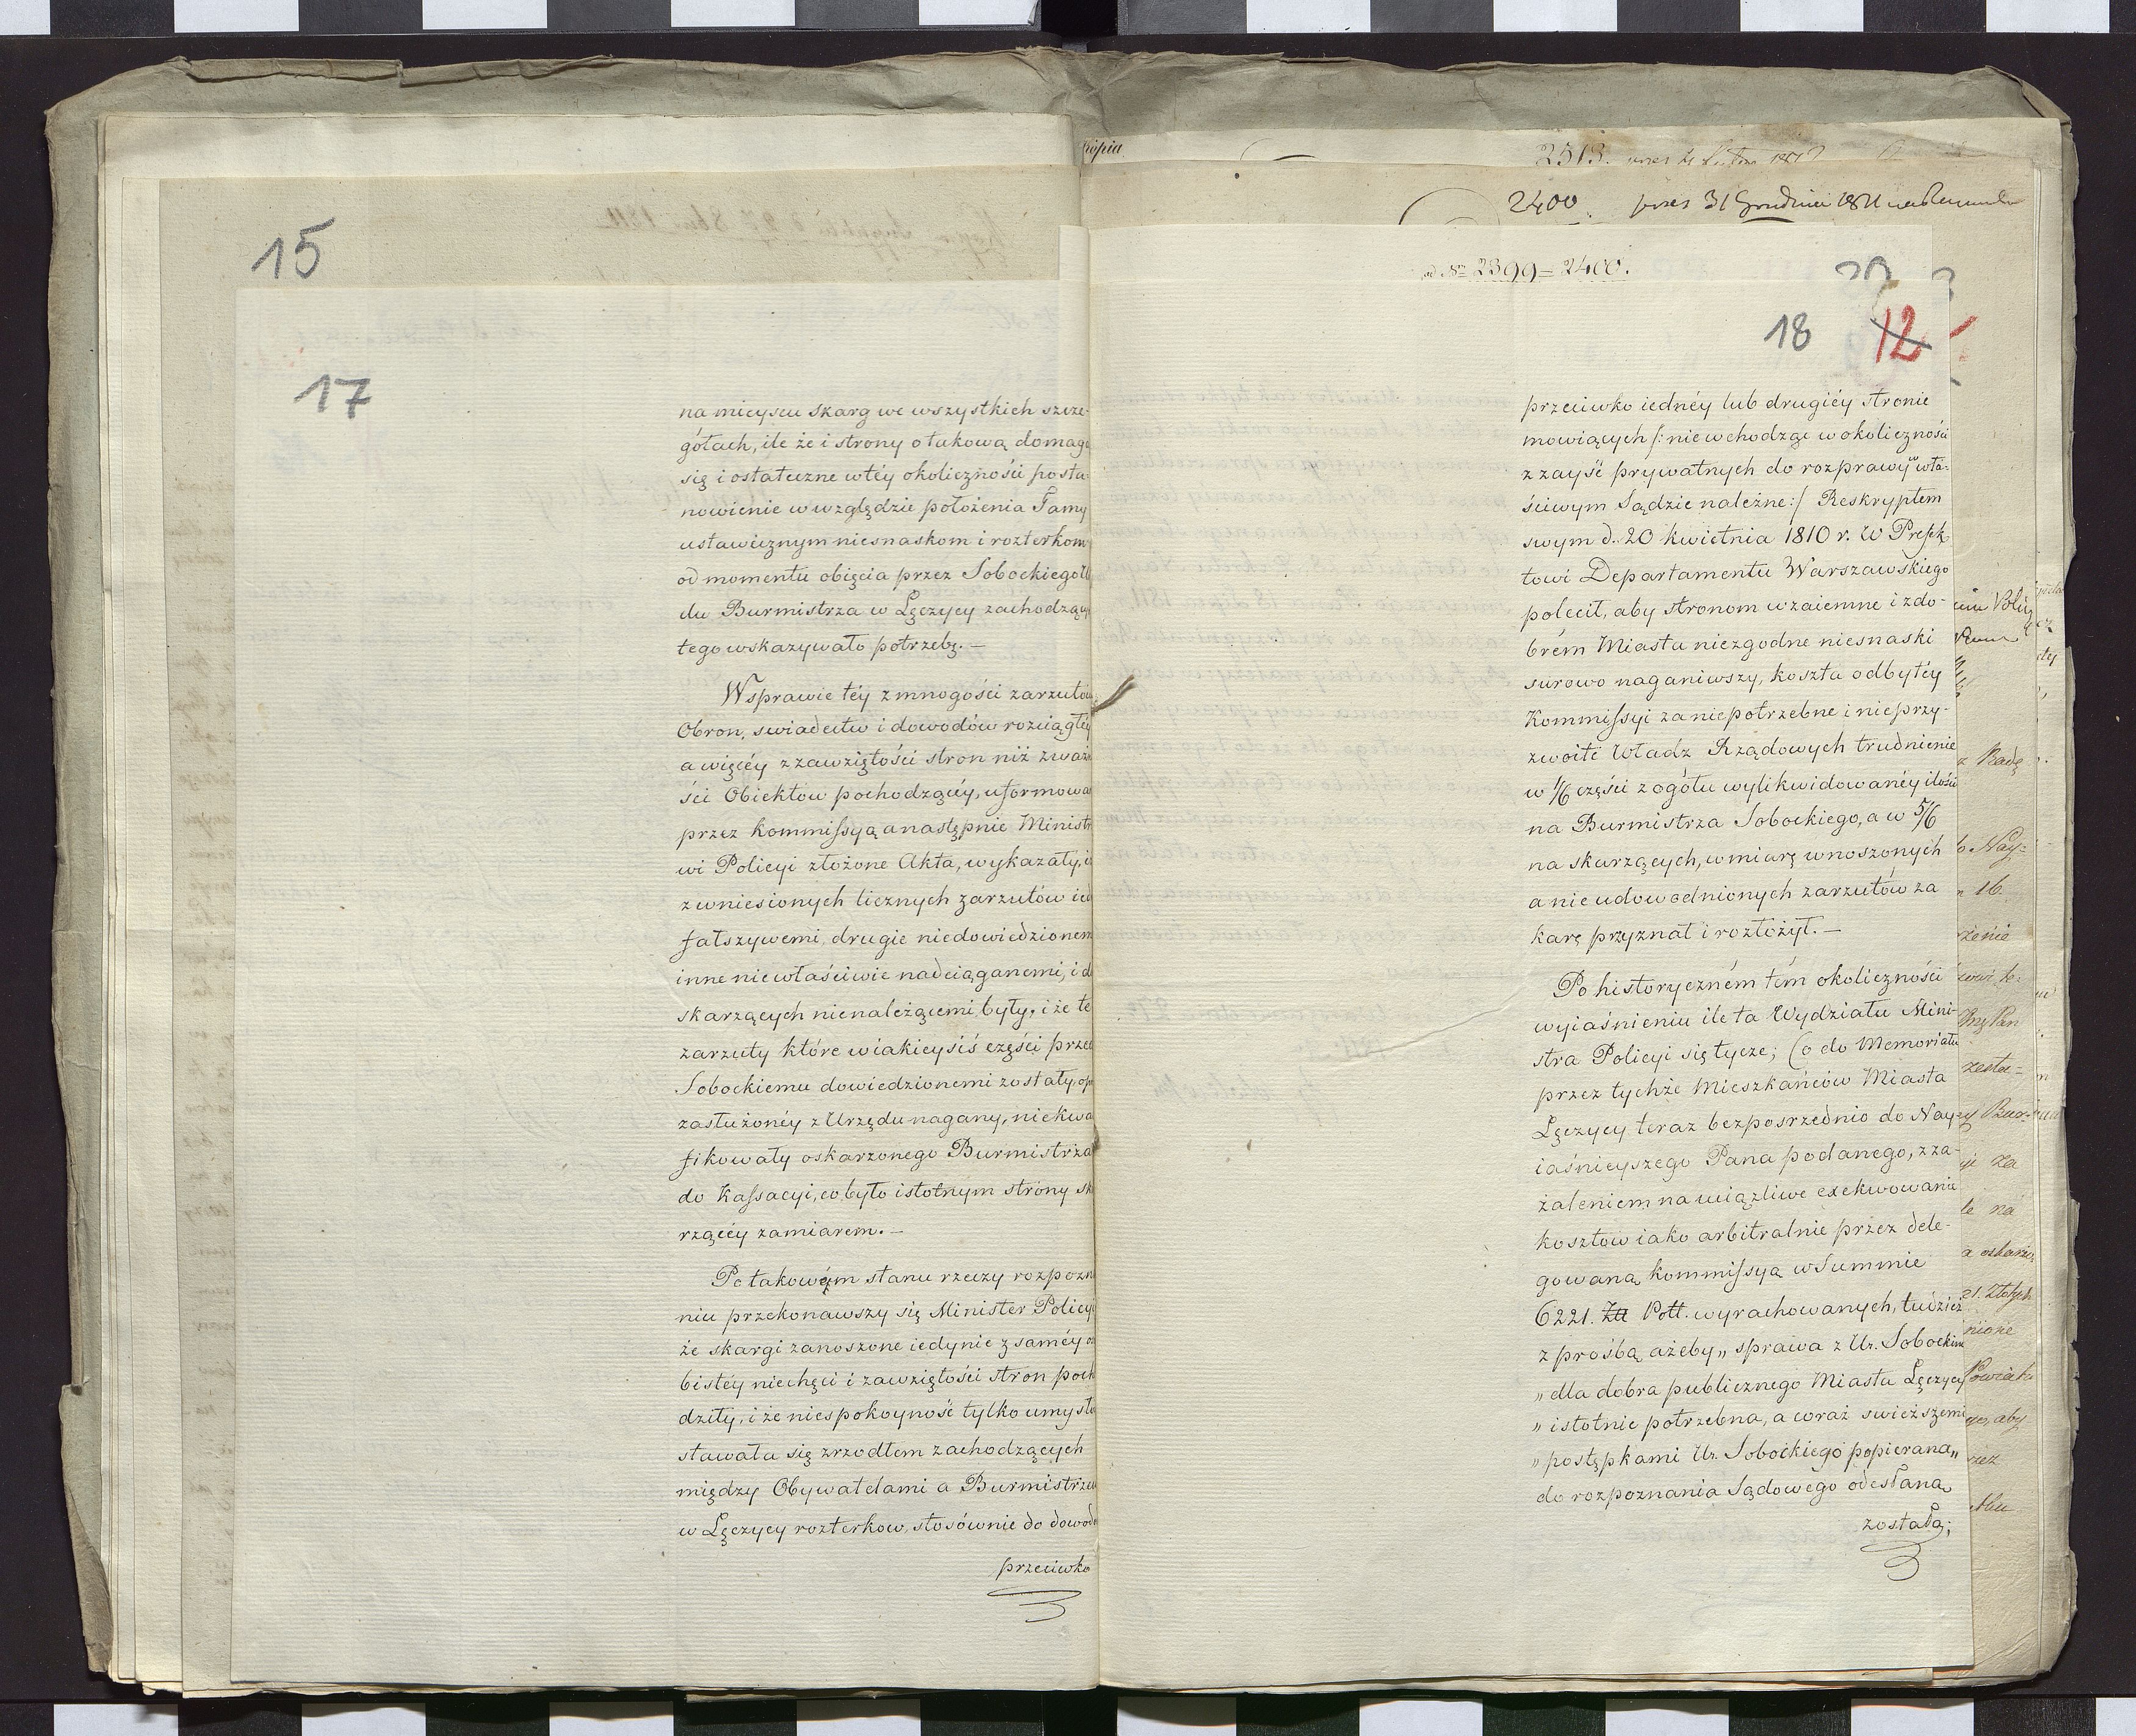 15
17
na mieyscu skarg we wszystkich szcze-
gółach, ile że i strony o takową domaga
się i ostateczne w téy okoliczności posta-
nowienie w względzie położenia Tamy
ustawicznym niesnaskom i rozterkom
od momentu obięcia przez Sobockiego
du Burmistrza w Łęczycy zachodzący
tego wskazywało potrzebę.—
W sprawie téy z mnogości zarzutów
Obron, swiadectw i dowodów rozciągłéy
a więcéy z zawziętości stron niż zważn
ści Obiektow pochodzącéy, uformowa
przez kommissyą a następnie Ministr
wi Policyi złożone Akta, wykazały, i
z wniesionych licznych zarzutów ied
fałszywemi, drugie niedowiedzionem
inne niewłaściwie nadciąganemi, i d
skarzących nienależącemi były, i że te
zarzuty które w iakieysiś części przec
Sobockiemu dowiedzionemi zostały, op
zasłużonéy z Urzędu nagany, niekwa
fikowały oskarzonego Burmistrza
do Kassacyi, co było istotnym strony sk
rzącéy zamiarem.—
Po takowém stanu rzeczy rozpozn
niu przekonawszy się Minister Policyi
że skargi zanoszone iedynie z saméy o
bistéy niechęci i zawziętości stron poch
dziły, i że niespokoyność tylko umysłó
stawała się zrzodłem zachodzących
między Obywatelami a Burmistrzem
w Łęczycy rozterkow, stosównie do dowod
przeciwko
kopia
2513.
2400. prez 31 Grudnia 1811
ad No 2399=2400.
18 12
przeciwko iednéy lub drugiéy stronie
mowiących /: nie wchodząc w okoliczności
z zayść prywatnych do rozprawy w wła-
ściwym Sądzie należne :/ Reskryptem
swym d. 20 kwietnia 1810 r. W Prefek
towi Departamentu Warszawskiego
polecił, aby stronom wzaiemne i z do-
brém Miasta niezgodne niesnaski
surowo naganiwszy, koszta odbytéy
Kommissyi za niepotrzebne i nieprzy-
zwoite Władz Rządowych trudnienie
w 1/6 części z ogółu wylikwidowanéy ilości
na Burmistrza Sobockiego, a w 5/6
na skarzących, w miarę wnoszonych
a nie udowodnionych zarzutów za
karę przyznał i rozłożył.—
Po historyczném tém okoliczności
wyiaśnieniu ile ta Wydziału Mini-
stra Policyi się tycze; Co do Memoriału
przez tychże Mieszkańców Miasta
Łęczycy teraz bezposrzednio do Nay-
iaśnieyszego Pana podanego, z za-
żaleniem na uciążliwe exekwowanie
kosztow iako arbitralnie przez dele-
gowaną kommissyą w Summie
6221. Zł Poll. wyrachowanych, tudzież
z prośbą ażeby „ sprawa z Ur. Sobockim
„ dla dobra publicznego Miasta Łęczycy
„ istotnie potrzebna, a coraz swieższemi
„ postępkami Ur. Sobockiego popierana„
do rozpoznania Sądowego odesłana
została;
z Radę
o Nay=
16
rżenie
zesta=
za
le na
a oskarżo
21. Złotych
nione
Powiatu
aby